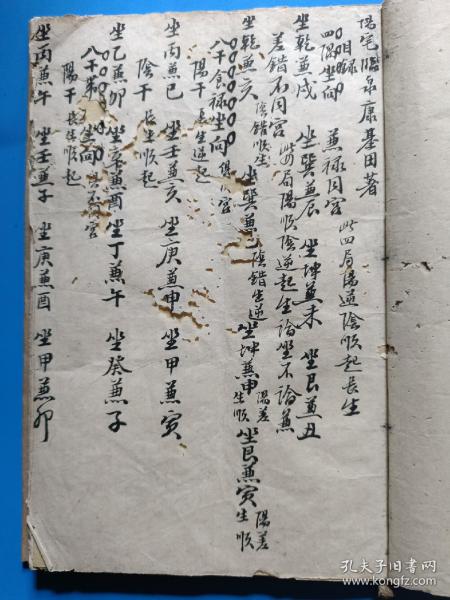 陽宅 康基田著
目錄
四隅坐向 兼祿同宮 此四局陽逆陰順起長生
坐乾兼戌 坐巽兼辰 坐坤兼未 坐艮兼丑
差錯不同宮 此局陽順陰逆起生論坐不論兼
坐乾兼亥 陰錯順生 坐巽兼巳 陰錯生逆 坐坤兼申 陽差生順 坐艮兼寅 陽差生順
八干食祿坐向 宮
陽干 長生逆起
坐丙兼巳 坐壬兼亥 坐庚兼申 坐甲兼寅
陰干 長生順起
坐乙兼卯 坐辛兼酉 坐丁兼午 坐癸兼子
八干 坐向 宮
陽干 長生順起
坐丙兼午 坐壬兼子 坐庚兼酉 坐甲兼卯
孔夫子旧书网
www.kongfz.com